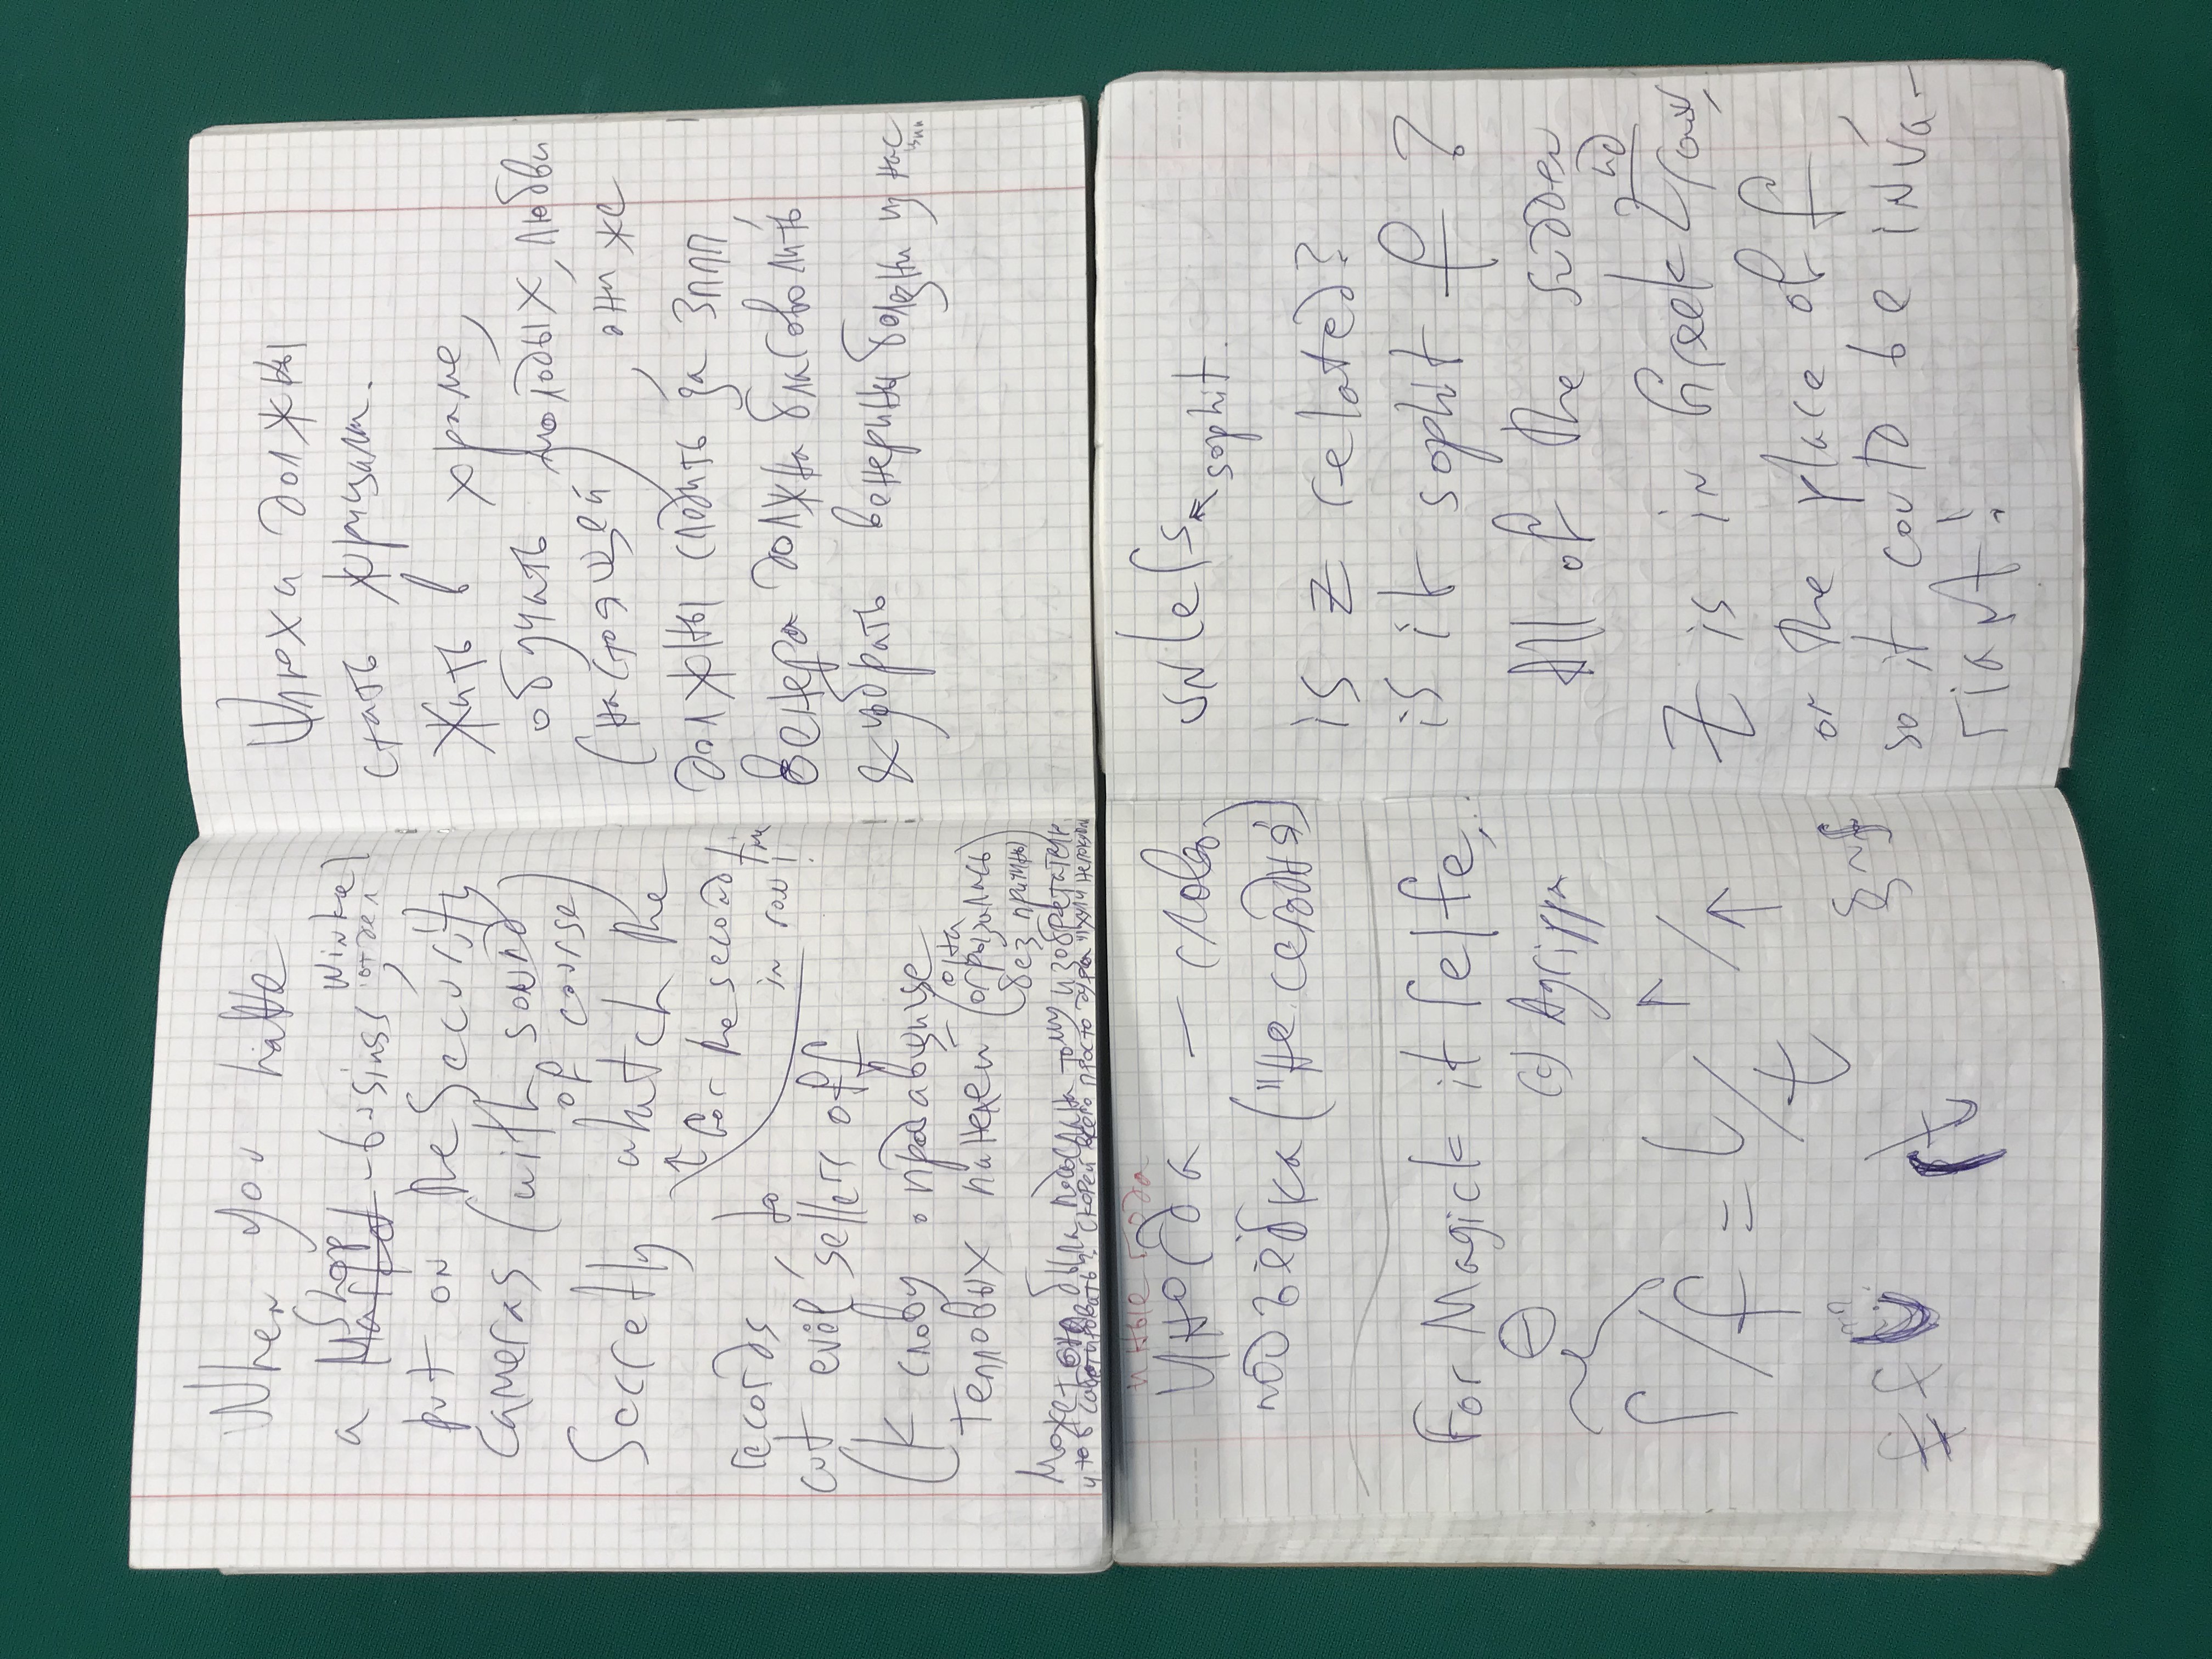 When you hatte
a Shop -business, Winkel
отдел
put on the Security
cameras (with sound
of course)
Secretly watch the
for the second time
in row!
records, to
cut evil sellers off
(К слову о продавщице
тепловых панелей (она
огрызалась
без причины)
Может она была подослана тому изобретателю
чтоб саботировать? Скорей всего просто дура
Шлюхи должны
стать жрицами.
Жить в храме,
обучать молодых, любви
(настоящей), они же
должны следить за ЗППП,
Венера должна благоволить
& убрать венерины болезни из нас
иные года
Иногда – слово
подъёбка ("не сегодня")
For Magick it ſelfe,..
(c) Agrippa
ſ/f = t
f f ??
ſt
unleſs
sophit.
is z related?
is it sophit f ?
All of the sudden
Z is in Greek 2nd row,
or the place of f,
so it could be inva-
riant!